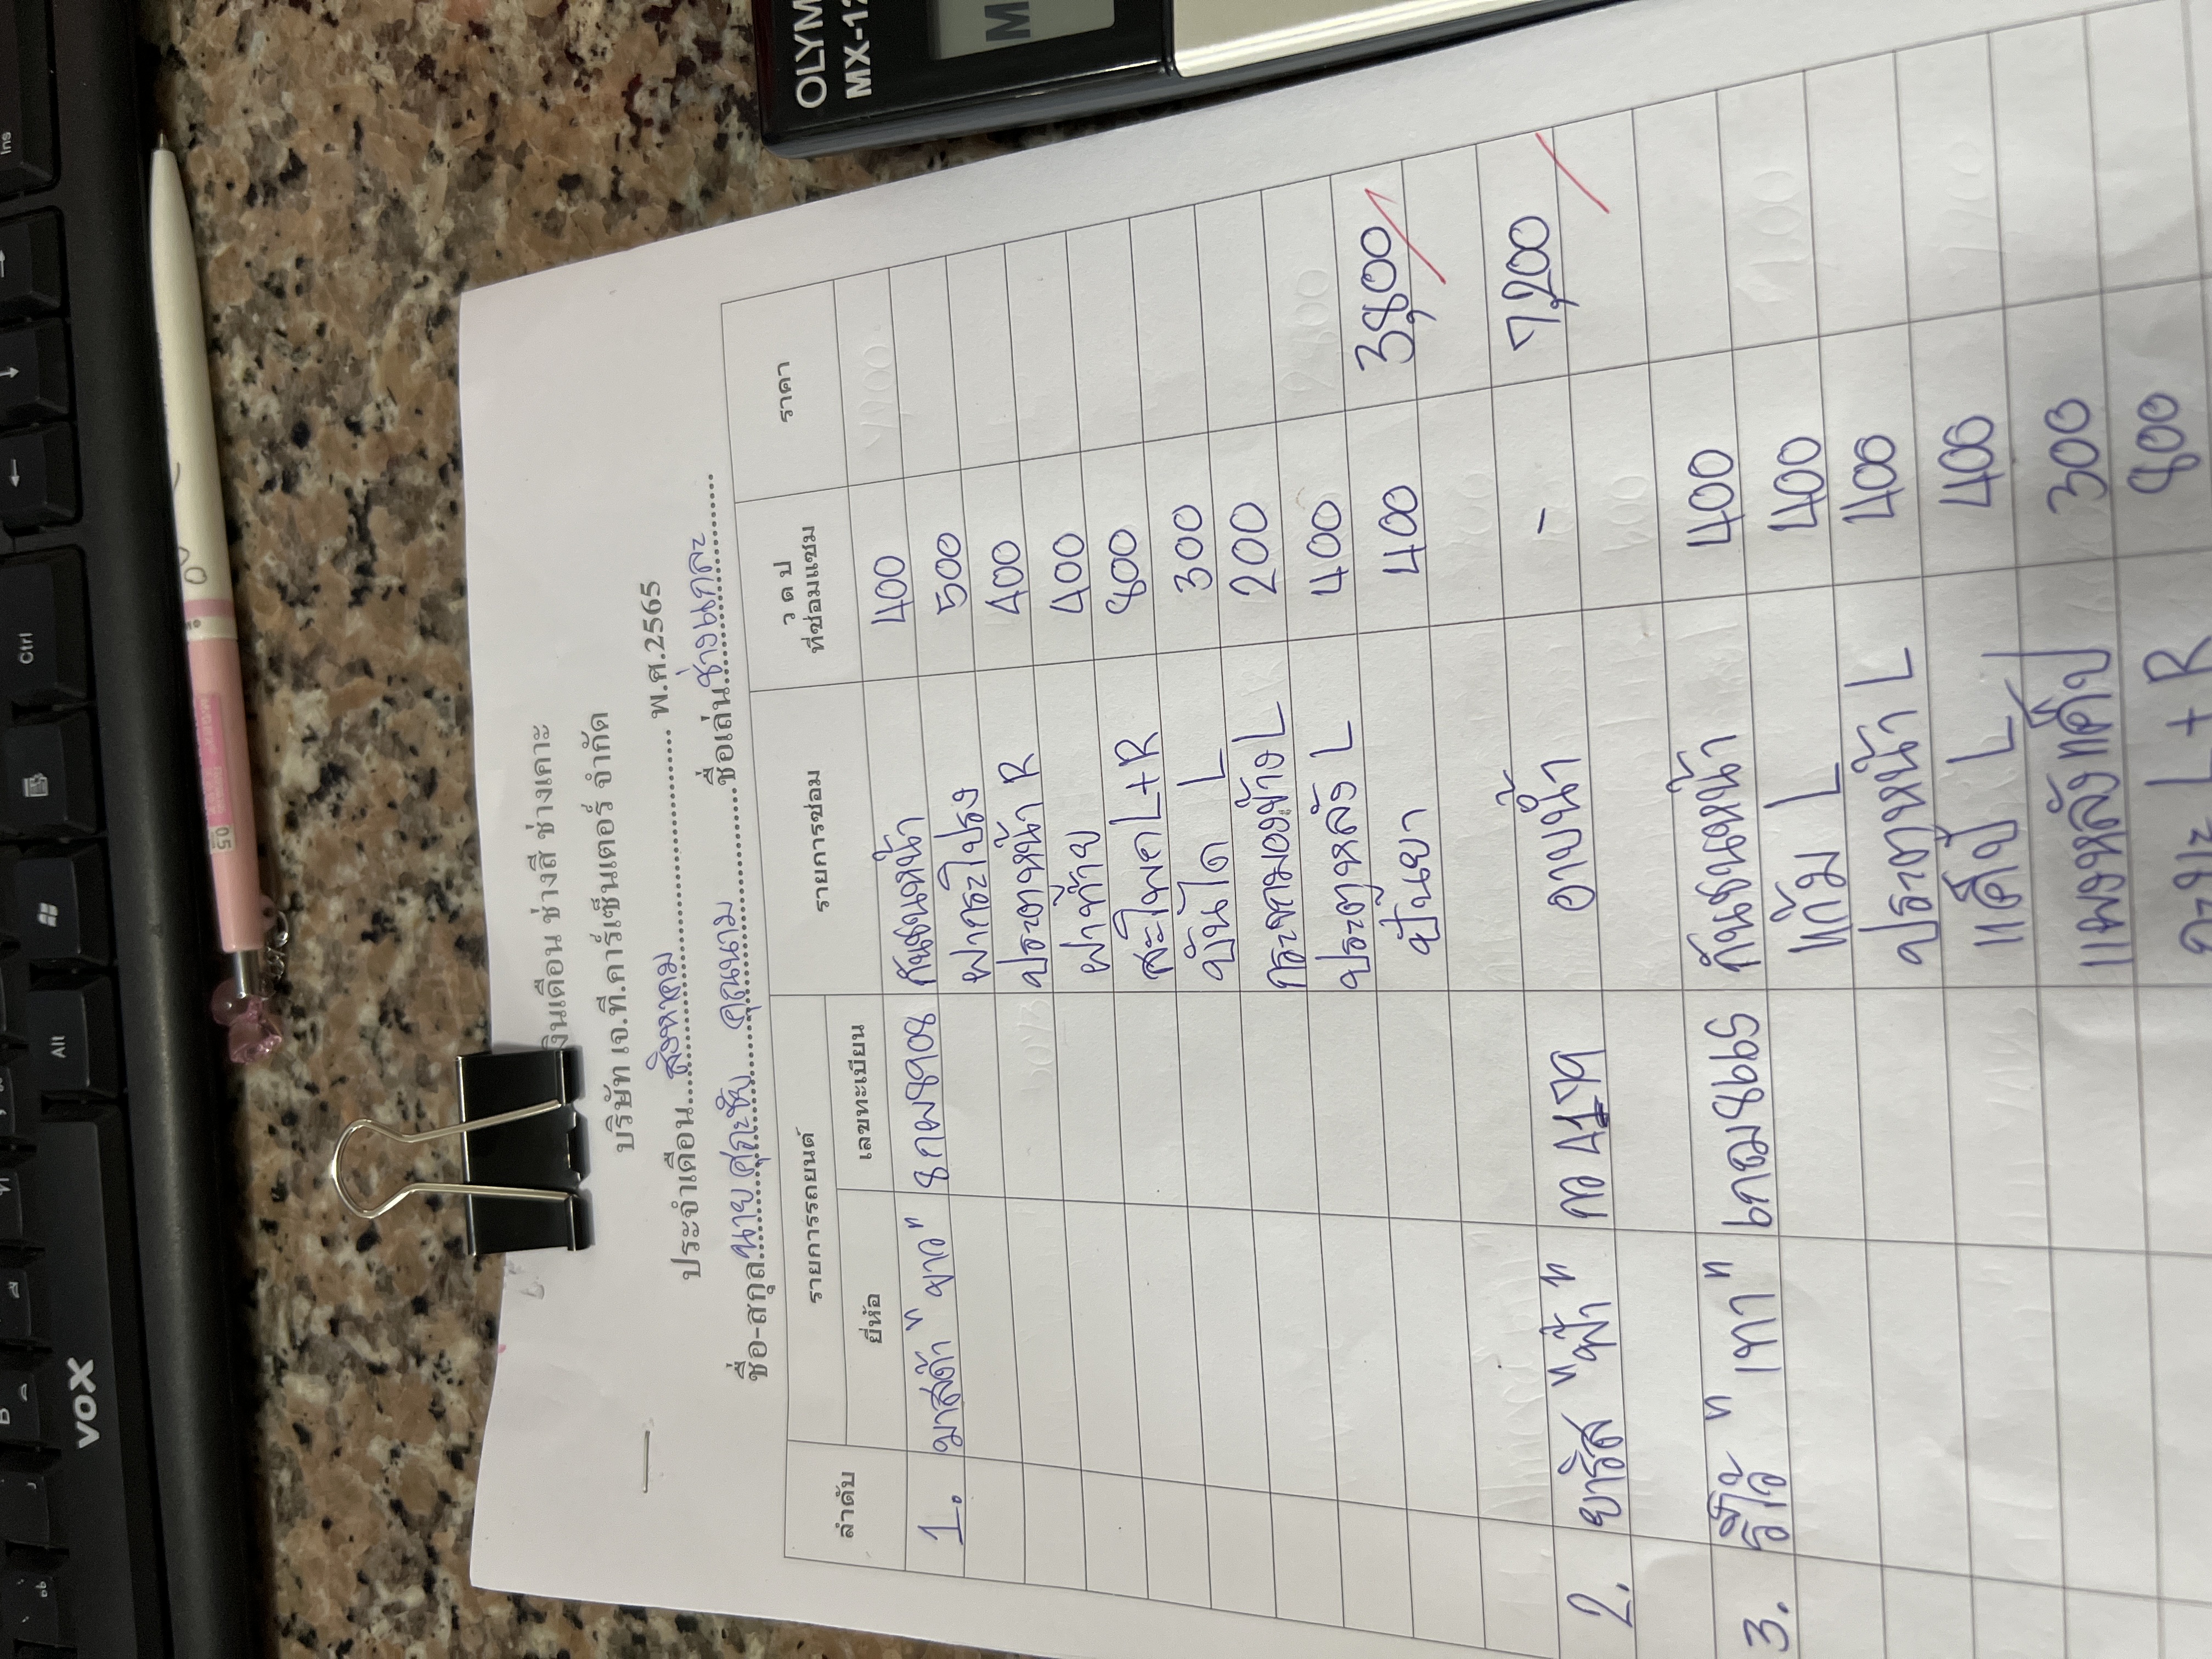 เงินเดือน ช่างสี ช่างเคาะ
บริษัท เจ.ที.คาร์เซ็นเตอร์ จำกัด
ประจำเดือน....สิงหาคม.... พ.ศ.2565
ชื่อ-สกุล นาย คุณนาม ชื่อเล่น ช่างแกละ
ลำดับ รายการรถยนต์ รายการซ่อม ว ด ป ที่ซ่อมแซม ราคา
ยี่ห้อ เลขทะเบียน
1. มาสด้า "ขาว" 8กผ8908 กันชนหน้า 400
ฝากระโปรง 500
ประตูหน้า R 400
ฝาท้าย 400
สะโพก L+R 800
บันได L 300
กระจกมองข้าง L 200
ประตูหลัง L 400
ปั่นยา 400 3,800
2. ยาริส "ฟ้า" อาบน้ำ - 7,200
3. รีโว่ "เทา" กันชนหน้า 400
แก้ม L 400
ประตูหน้า L 400
แค็ป L 400
แผงหลังแค็ป 300
L+R 800
OLYM
MX-12
M
VOX
Alt
Ctrl
Ins
0.5